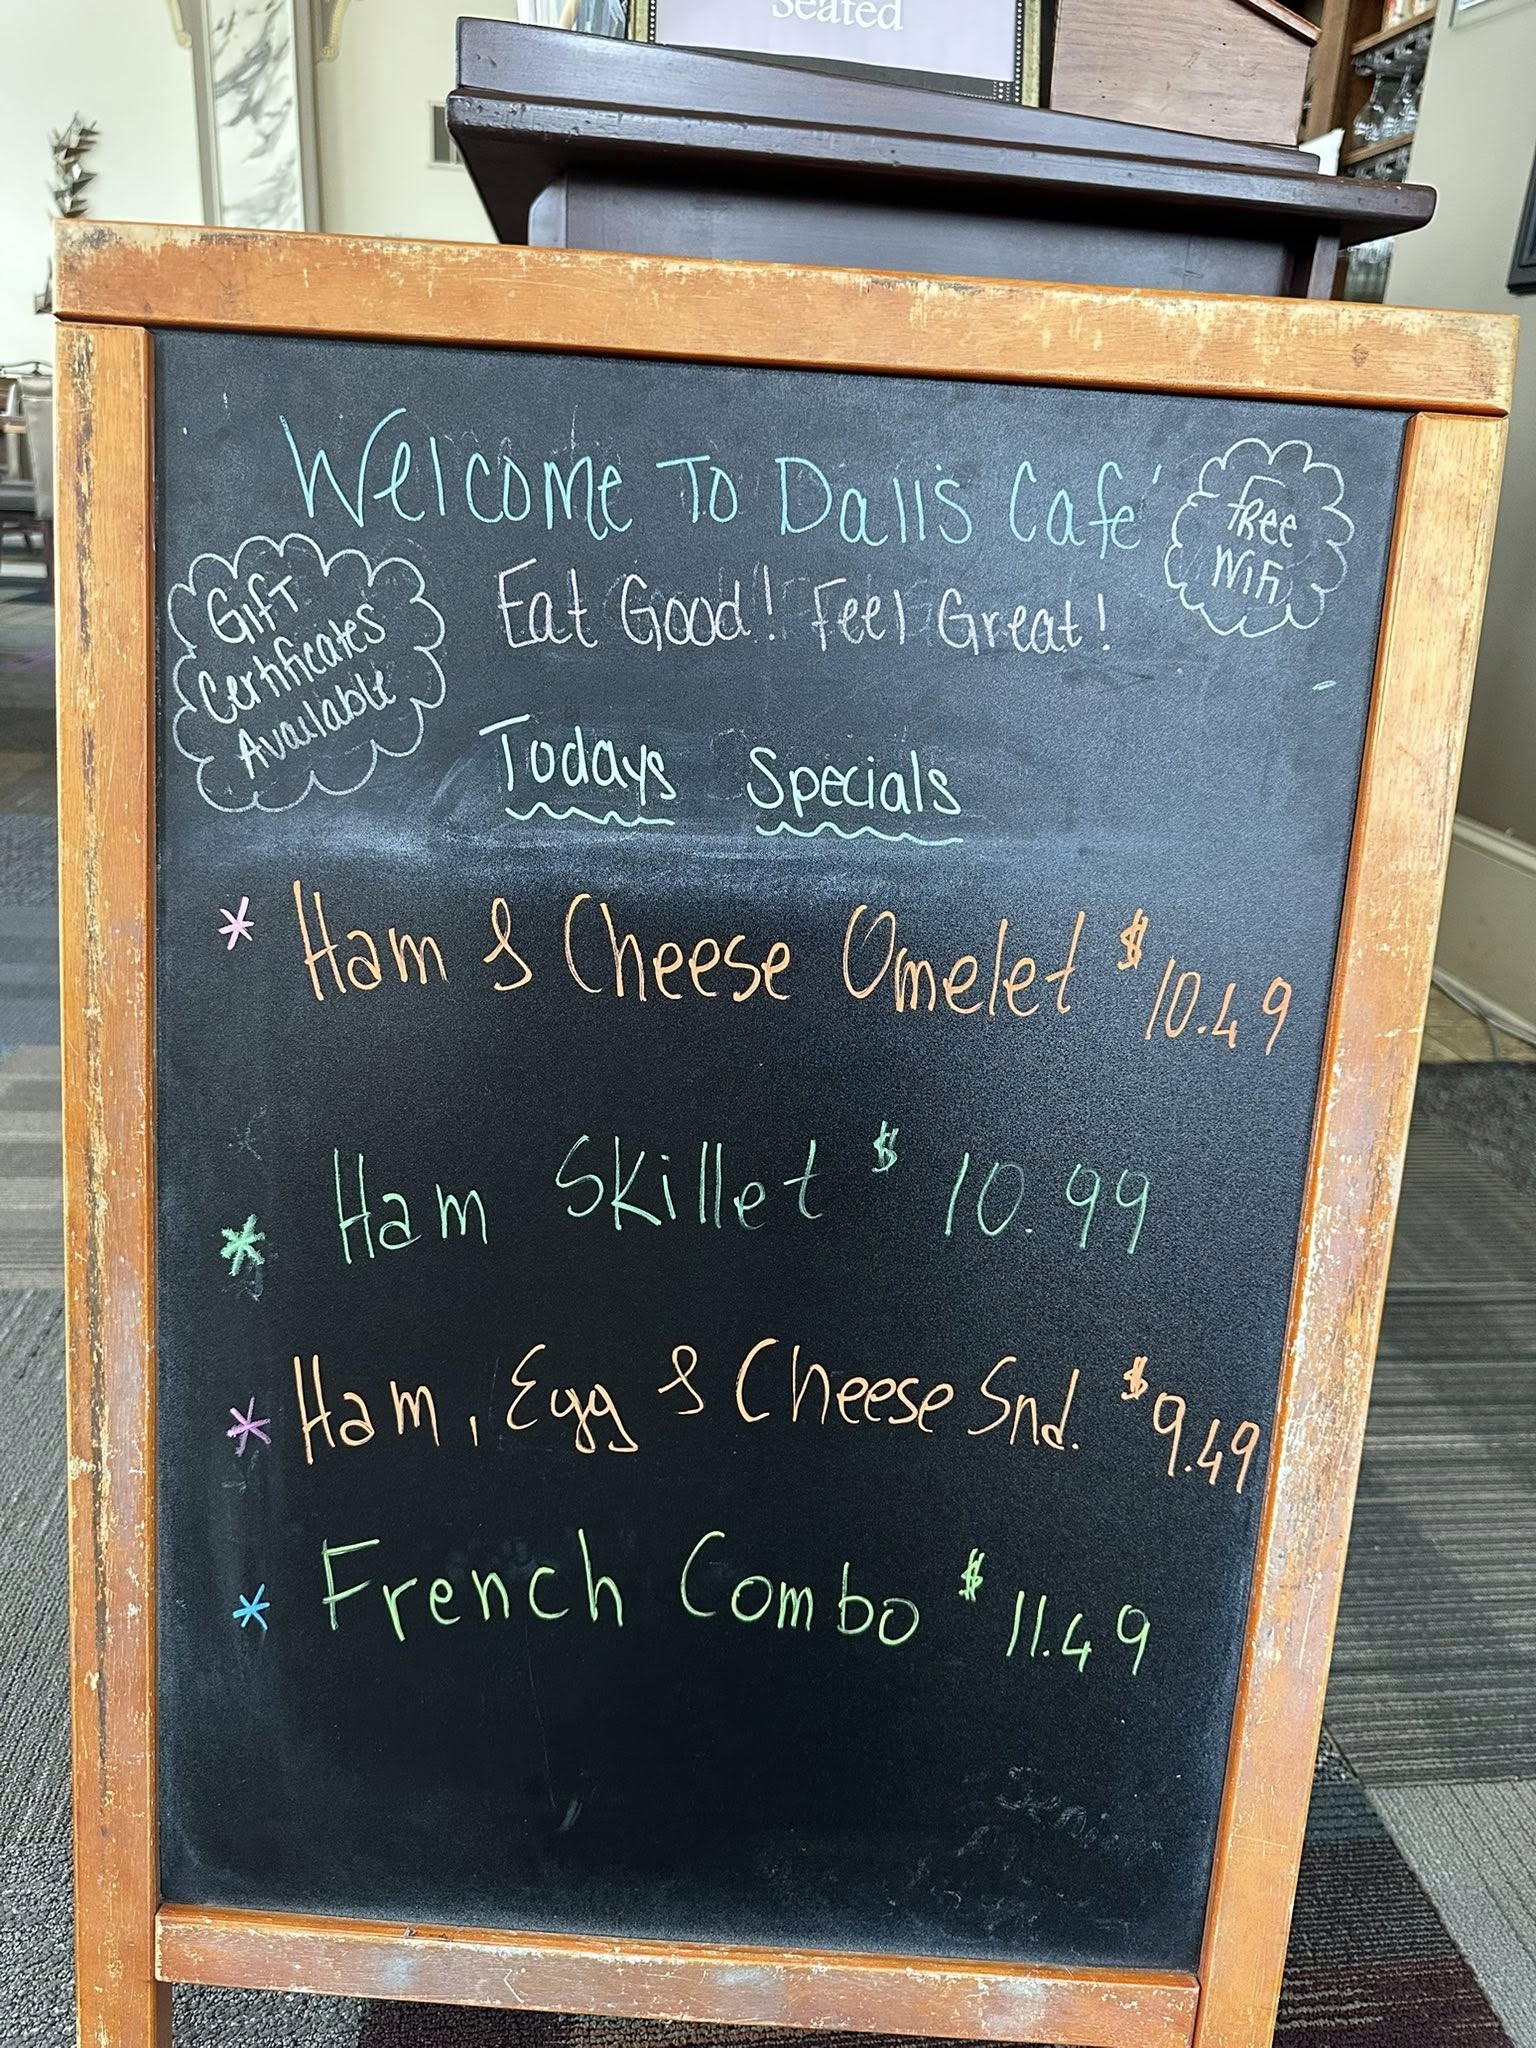 Seated
Welcome To Dall's Café
Free
Wifi
Gift
Certificates
Available
Eat Good! Feel Great!
Todays Specials
* Ham & Cheese Omelet $10.49
* Ham Skillet $10.99
* Ham, Egg & Cheese Snd. $9.49
* French Combo $11.49